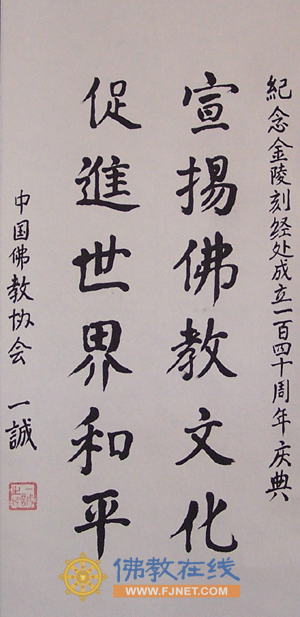 紀念金陵刻经处成立一百四十周年庆典
宣揚佛教文化
促進世界和平
中国佛教协会 一誠
佛教在线
WWW.FJNET.COM